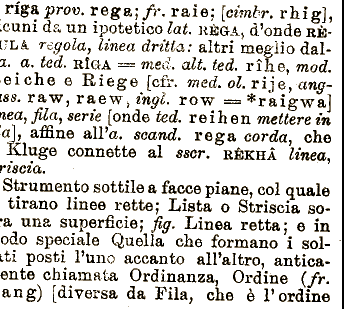 ríga prov. rega; fr. raie; [cimbr. rhig],
cuni da un ipotetico lat. RÈGA, d'onde RÈ-
ULA regola, linea dritta: altri meglio dal-
a. a. ted. RÎGA = med. alt. ted. rîhe, mod.
eiche e Riege [cfr. med. ol. rije, ang-
ss. raw, raew, ingl. row = *raigwa]
nea, fila, serie [onde ted. reihen mettere in
a], affine all'a. scand. rega corda, che
Kluge connette al sscr. RÊKHÂ linea,
riscia.
Strumento sottile a facce piane, col quale
tirano linee rette; Lista o Striscia so-
ra una superficie; fig. Linea retta; e in
odo speciale Quella che formano i sol-
ati posti l'uno accanto all'altro, antica-
ente chiamata Ordinanza, Ordine (fr.
ang) [diversa da Fila, che è l'ordine